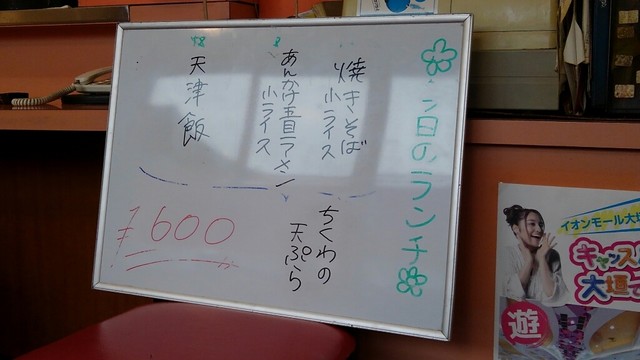 今日のランチ
焼きそば
小ライス
あんかけ五目ラーメン
小ライス
天津飯
ちくわの
天ぷら
¥600
イオンモール大垣
キャンパス
大垣で
遊